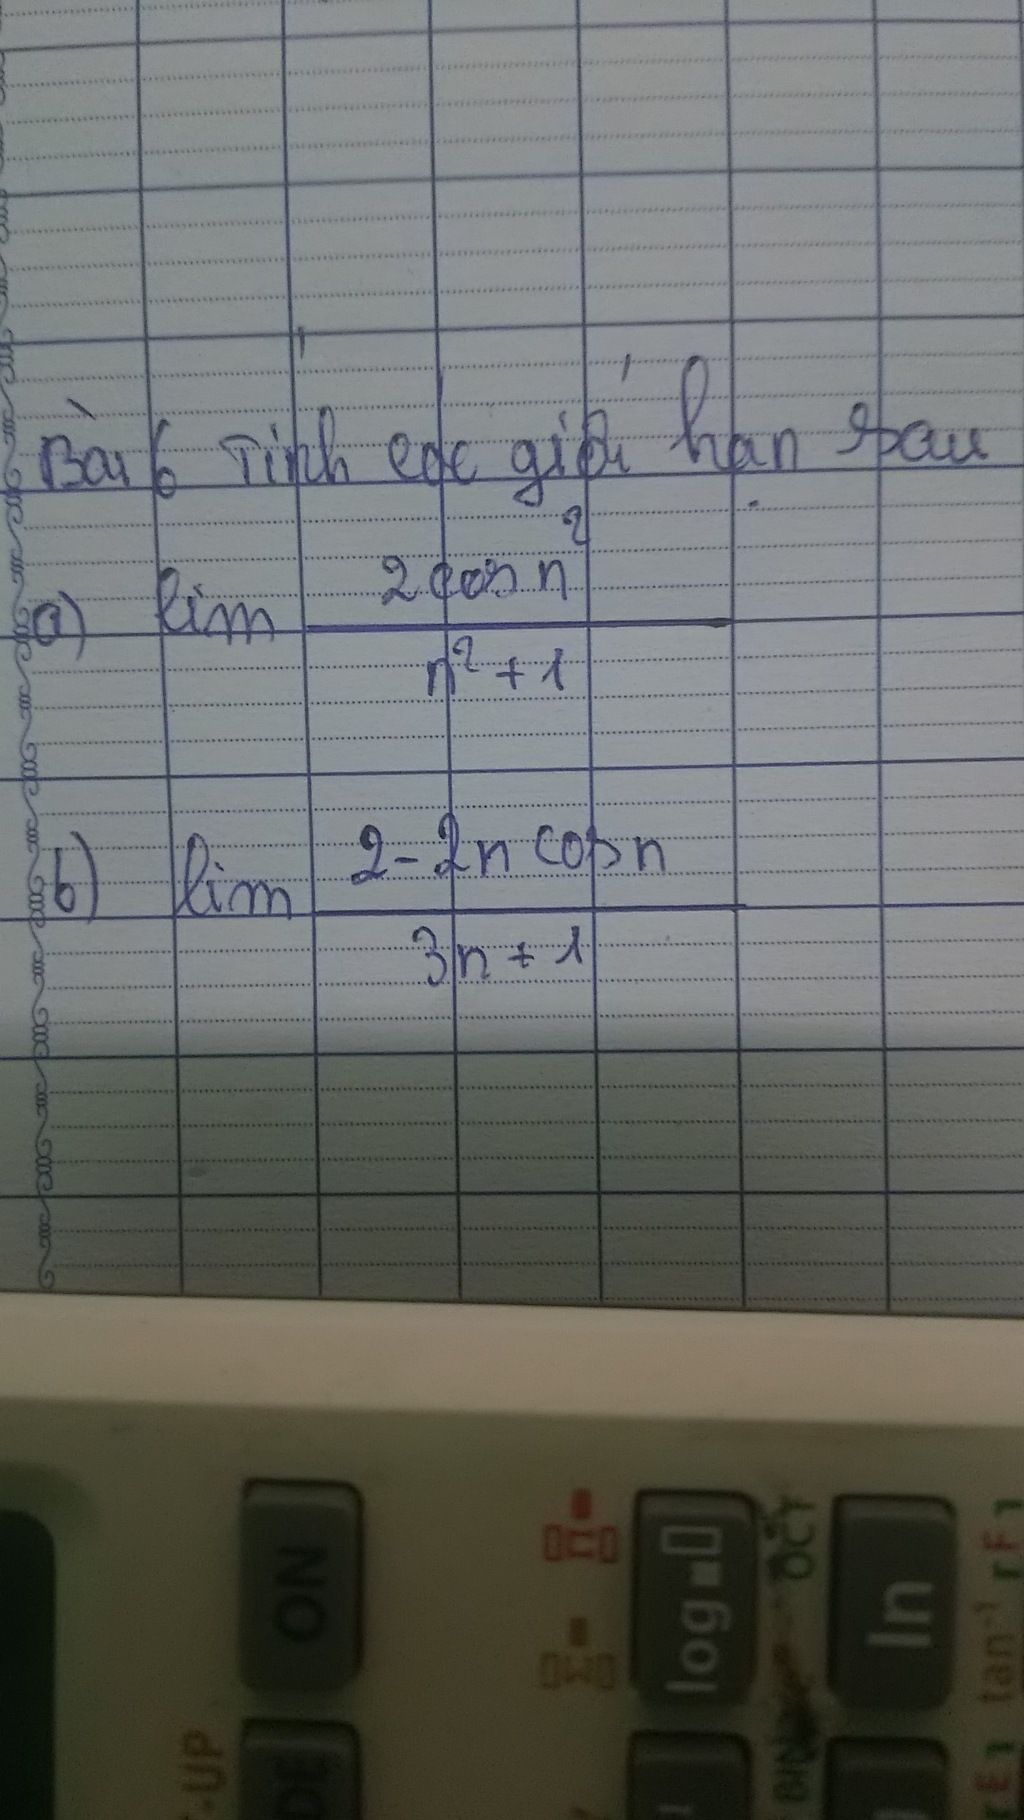 Bài 6 Tính các giới hạn sau
a) lim 2cos n²
n² + 1
b) lim 2 - 2n cos n
3n + 1
ON
log
OCT
ln
tan⁻¹
BIN